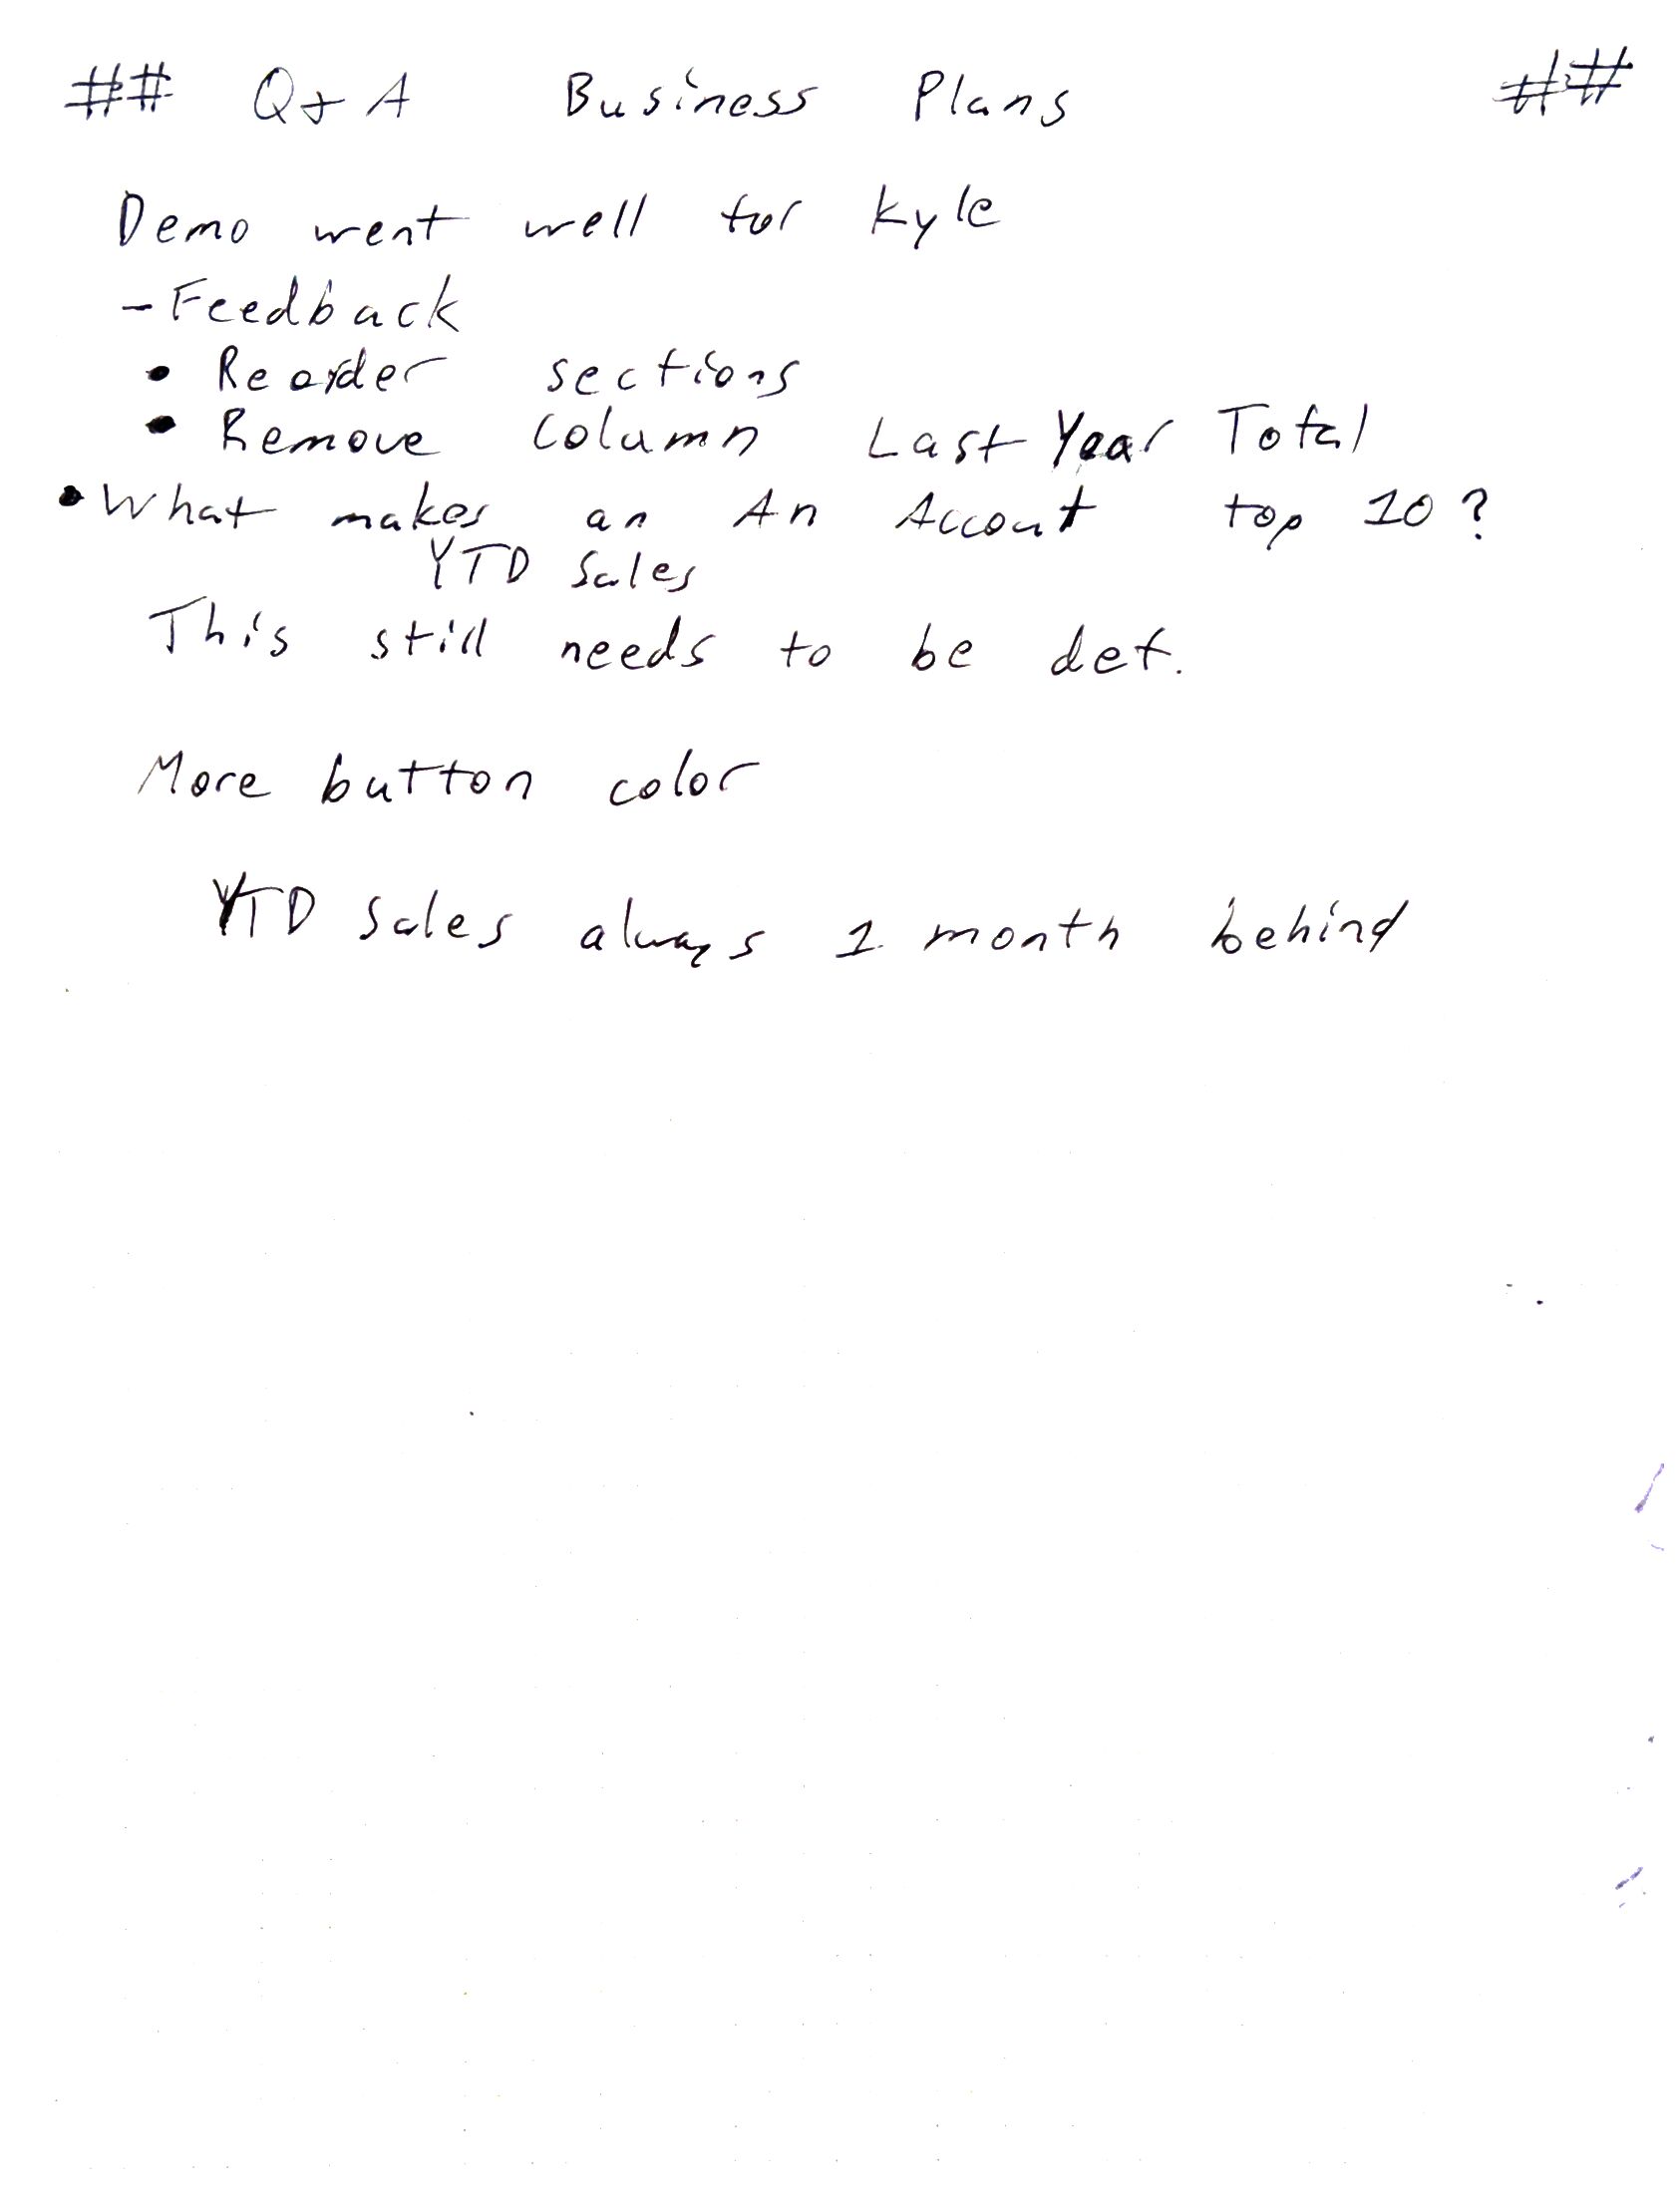 ## Q & A Business Plans ##
Demo went well for Kyle
- Feedback
• Reorder sections
• Remove column Last Year Total
• What makes an An Account top 10?
YTD Sales
This still needs to be det.
More button color
YTD Sales always 1 month behind